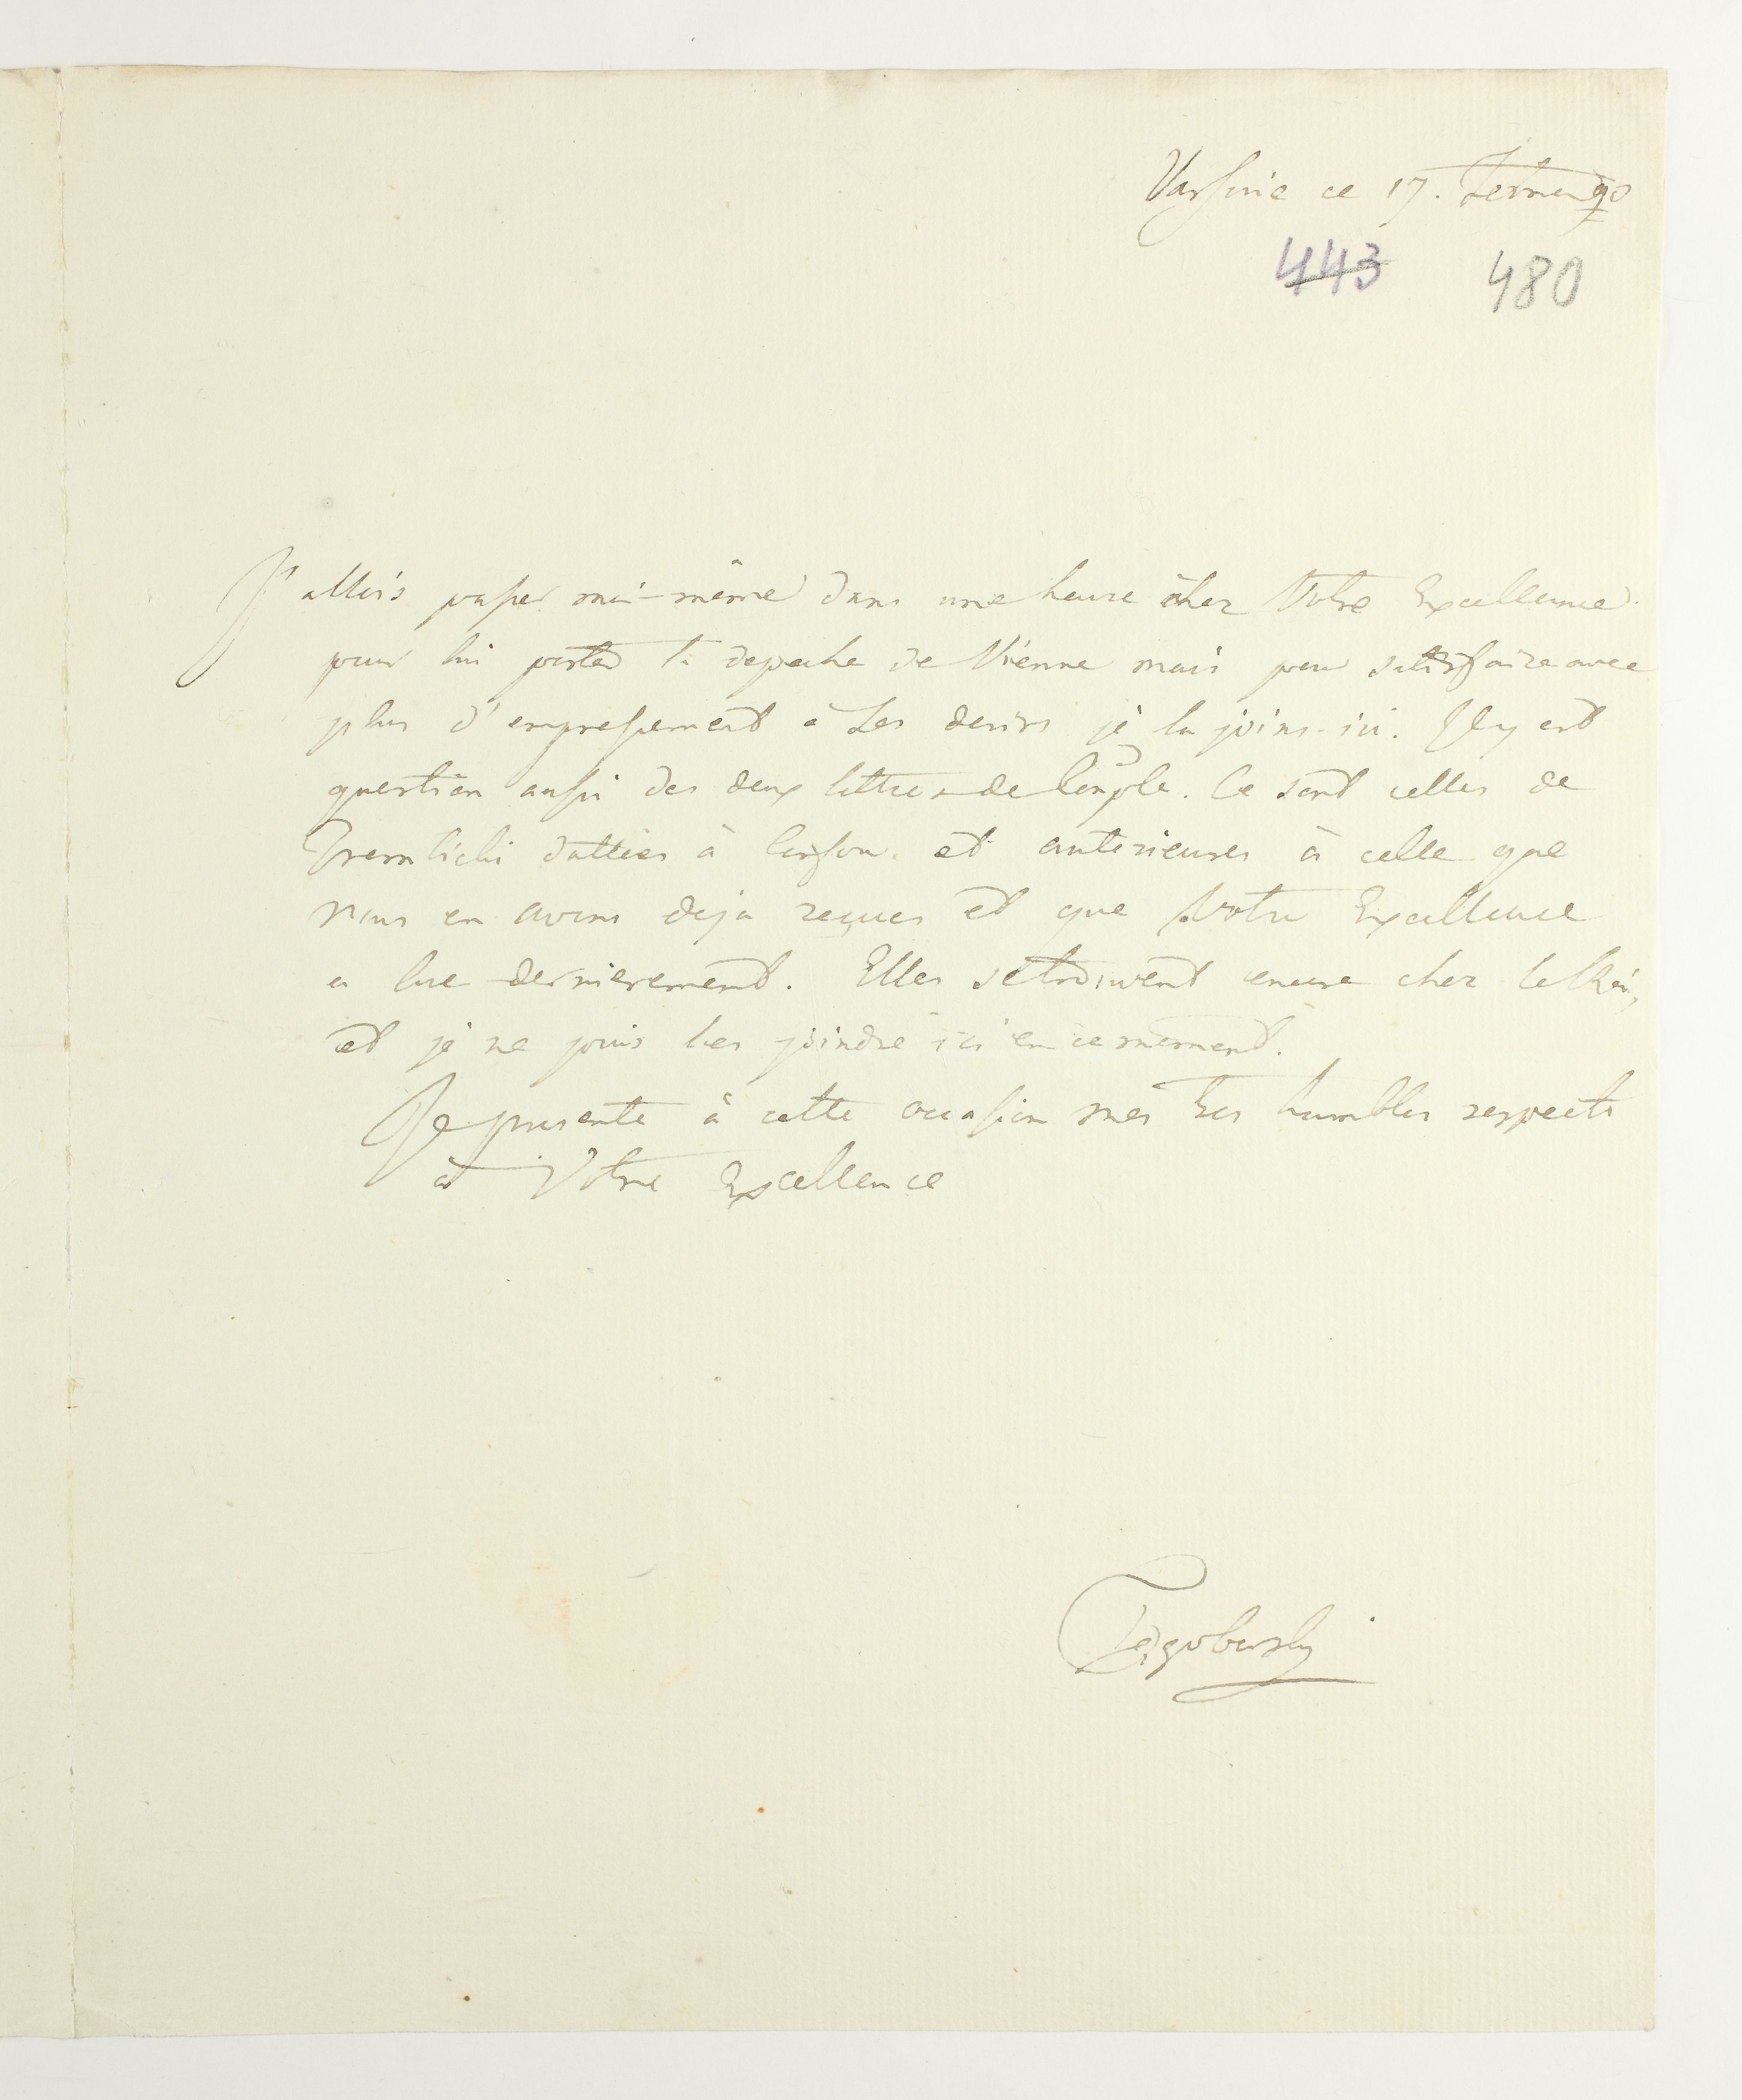 Varsovie ce 17.
443 480
J'allois passer moi-même dans une heure chez Votre Excellence
pour lui porter la depeche de Vienne mais pour satisfaire avec
plus d'empressement à Ses desirs je la joins-ici. Il y est
question aussi des deux lettres de Conple. Ce sont celles de
dattées à et anterieures à celle que
nous en avons deja reçues et que Votre Excellence
a lue dernierement. Elles se trouvent encore chez le Roi,
et je ne puis les joindre ici en ce moment.
Je presente à cette occasion mes tres humbles respects
à Votre Excellence